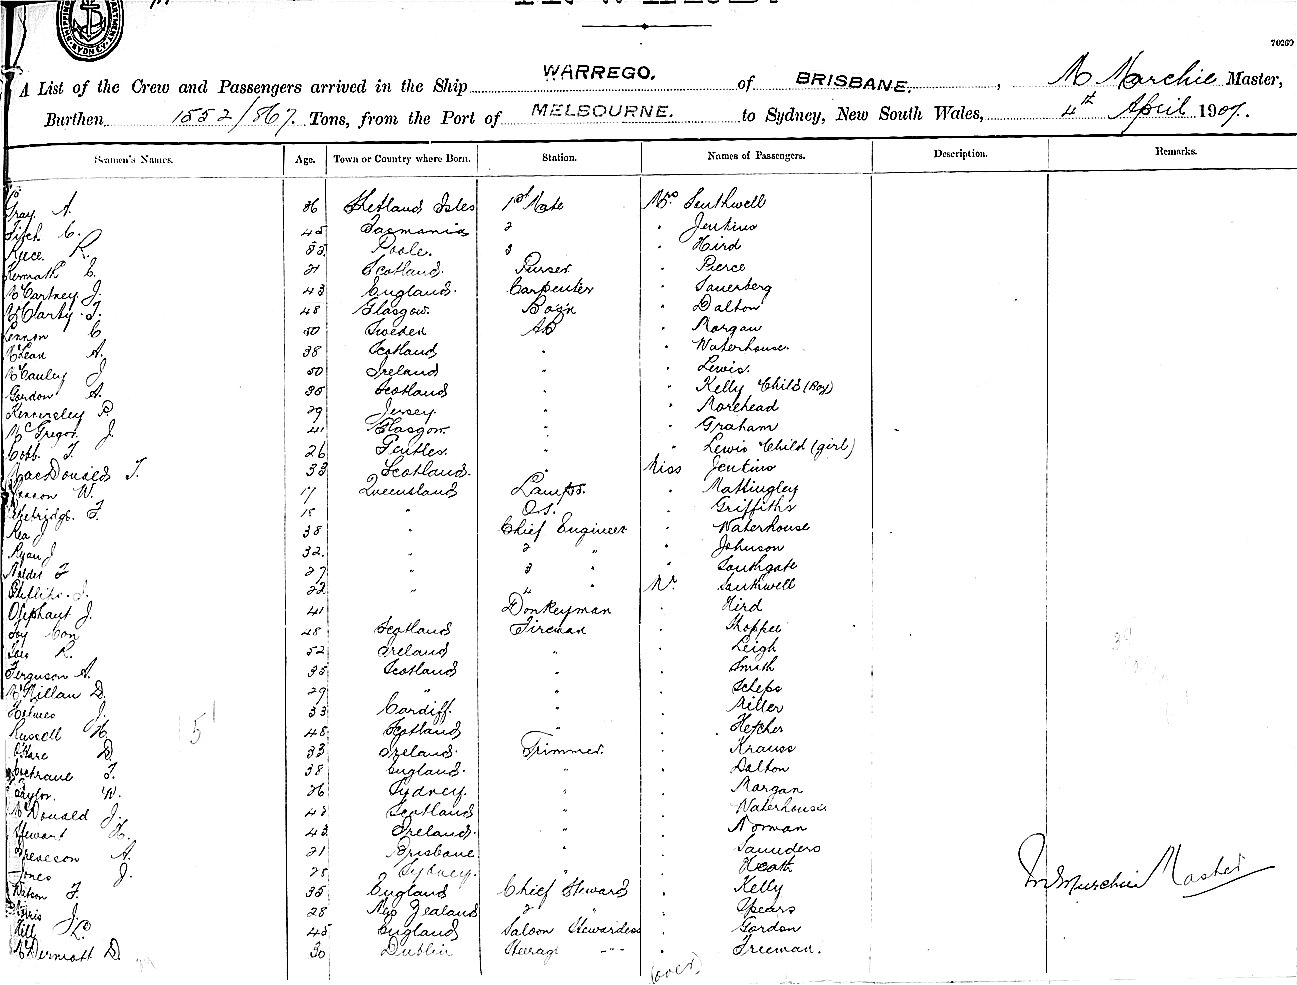 70269
A List of the Crew and Passengers arrived in the Ship WARREGO. of BRISBANE, Master,
Burthen 1552/867 Tons, from the Port of MELBOURNE. to Sydney, New South Wales, 4th April 1907.
Seamen's Names. Age. Town or Country where Born. Station. Names of Passengers. Description. Remarks.
Gray A. 36 Shetland Isles 1st Mate Mrs Southwell
Fitch C. 45 Tasmania 2 " Jenkins
R. Poole. 3 " Hird
C. 21 Scotland. Purser " Pierce
McCartney J. 43 England. Carpenter " Sauerberg
McCarty T. 48 Glasgow. Bo'sn " Dalton
Lennon C 50 Sweden AB " Morgan
McLean A. 38 Scotland " " Waterhouse.
McCauley J 50 Ireland " " Lewis.
Gordon A. 35 Scotland " " Kelly Child (Boy)
Kennerley R 29 Jersey. " " Morehead
McGregor J. 41 Glasgow. " " Graham
Cobb. T. 26 " " Lewis Child (girl)
MacDonald T. 33 Scotland. " Miss Jenkins
W. 17 Queensland Lamps. " Mattingley
T. 18 " O.S. " Griffiths
Rea J 38 " Chief Engineer " Waterhouse
Ryan J 32. " 2 " " Johnson
F 27 " 3 " " Southgate
Phillips. J. 22 " 4 " Mr. Southwell
Oliphant J. 41 Donkeyman " Hird
Foy Con 48 Scotland Fireman " Hopper
R. 52 Ireland " " Leigh
Ferguson A. 35 Scotland " " Smith
McMillan D. 29 " " " Scheps
Holmes J. 33 Cardiff. " " Miller
Russell H 48 Scotland " " Hefcher
O'Hare D. 33 Ireland. Trimmer. " Krauss
Cochrane T. 38 England. " " Dalton
Taylor. W. 36 Sydney. " " Morgan
McDonald J. 42 Scotland " " Waterhouse
Stewart H. 43 Ireland. " " Norman
A. 21 Brisbane " " Saunders
Jones J. 25 Sydney. " " Heath.
Watson F. 35 England Chief Steward " Kelly
J. 28 New Zealand 2 " " Spears
Hill L. 45 England Saloon Stewardess " Gordon
McDermott D 30 Dublin Steerage " " Freeman.
(over)
M McMurchie Master